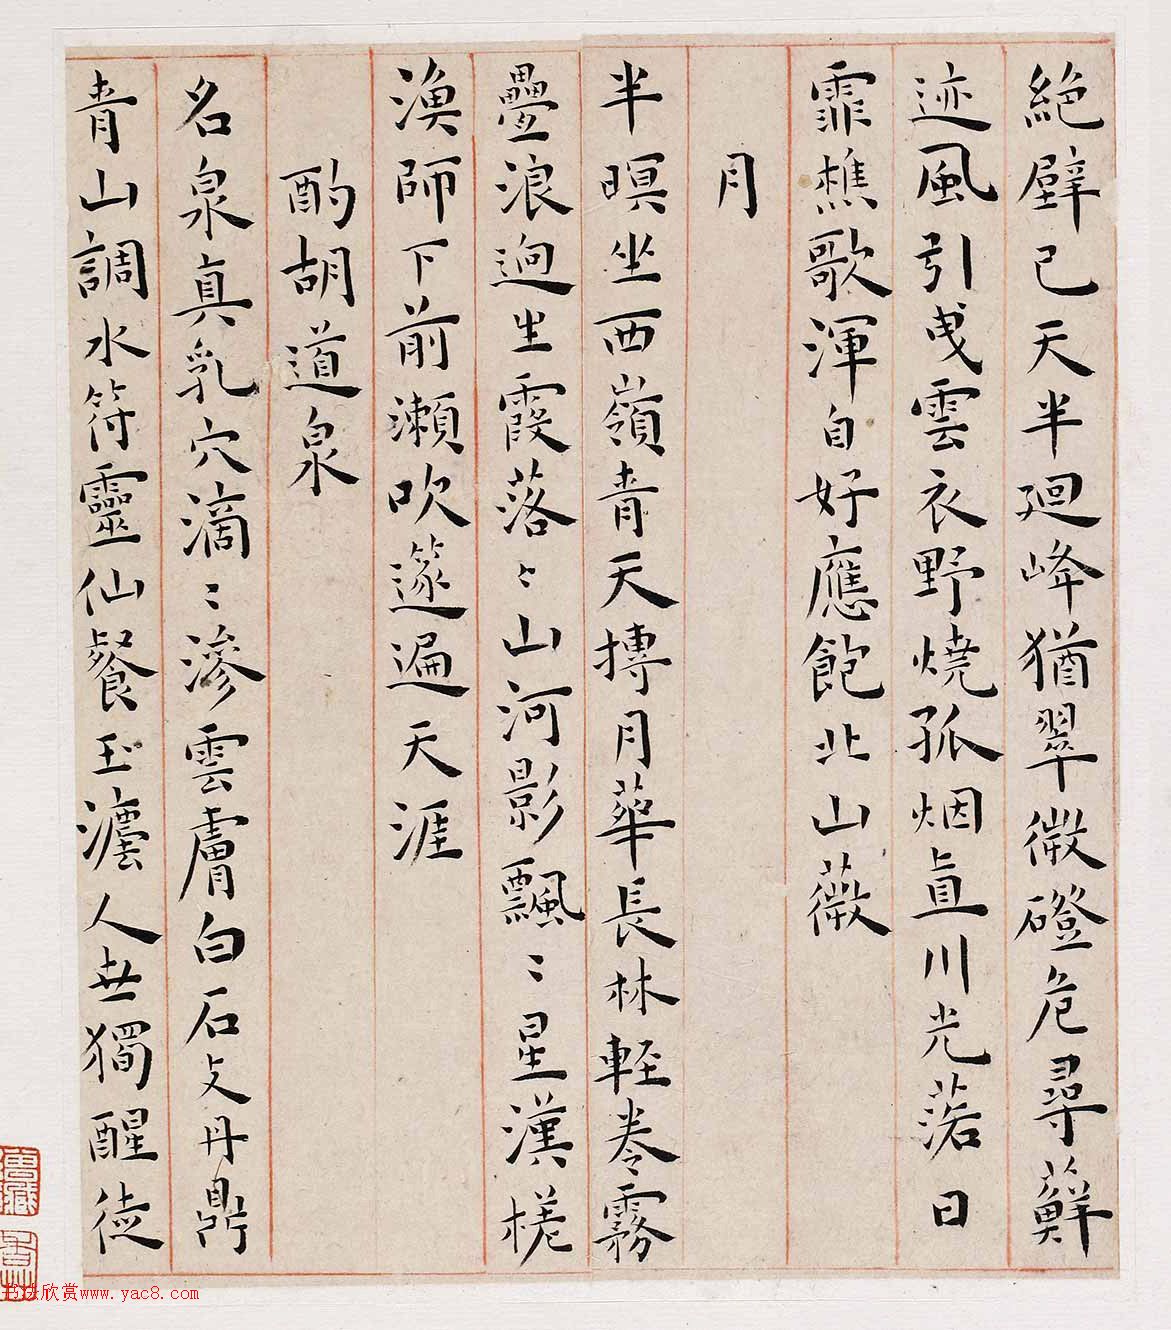 絶壁已天半迴峰猶翠微磴危尋蘚
迹風引曳雲衣野燒孤烟直川光落日
霏樵歌渾自好應飽北山薇
月
半暝坐西嶺青天摶月華長林輕卷霧
疊浪迥生霞落〻山河影飄〻星漢槎
漁師下前瀨吹篴遍天涯
酌胡道泉
名泉真乳穴滴〻滲雲膚白石支丹鼎
青山調水符靈仙餐玉瀣人世獨醒徒
书法欣赏www.yac8.com